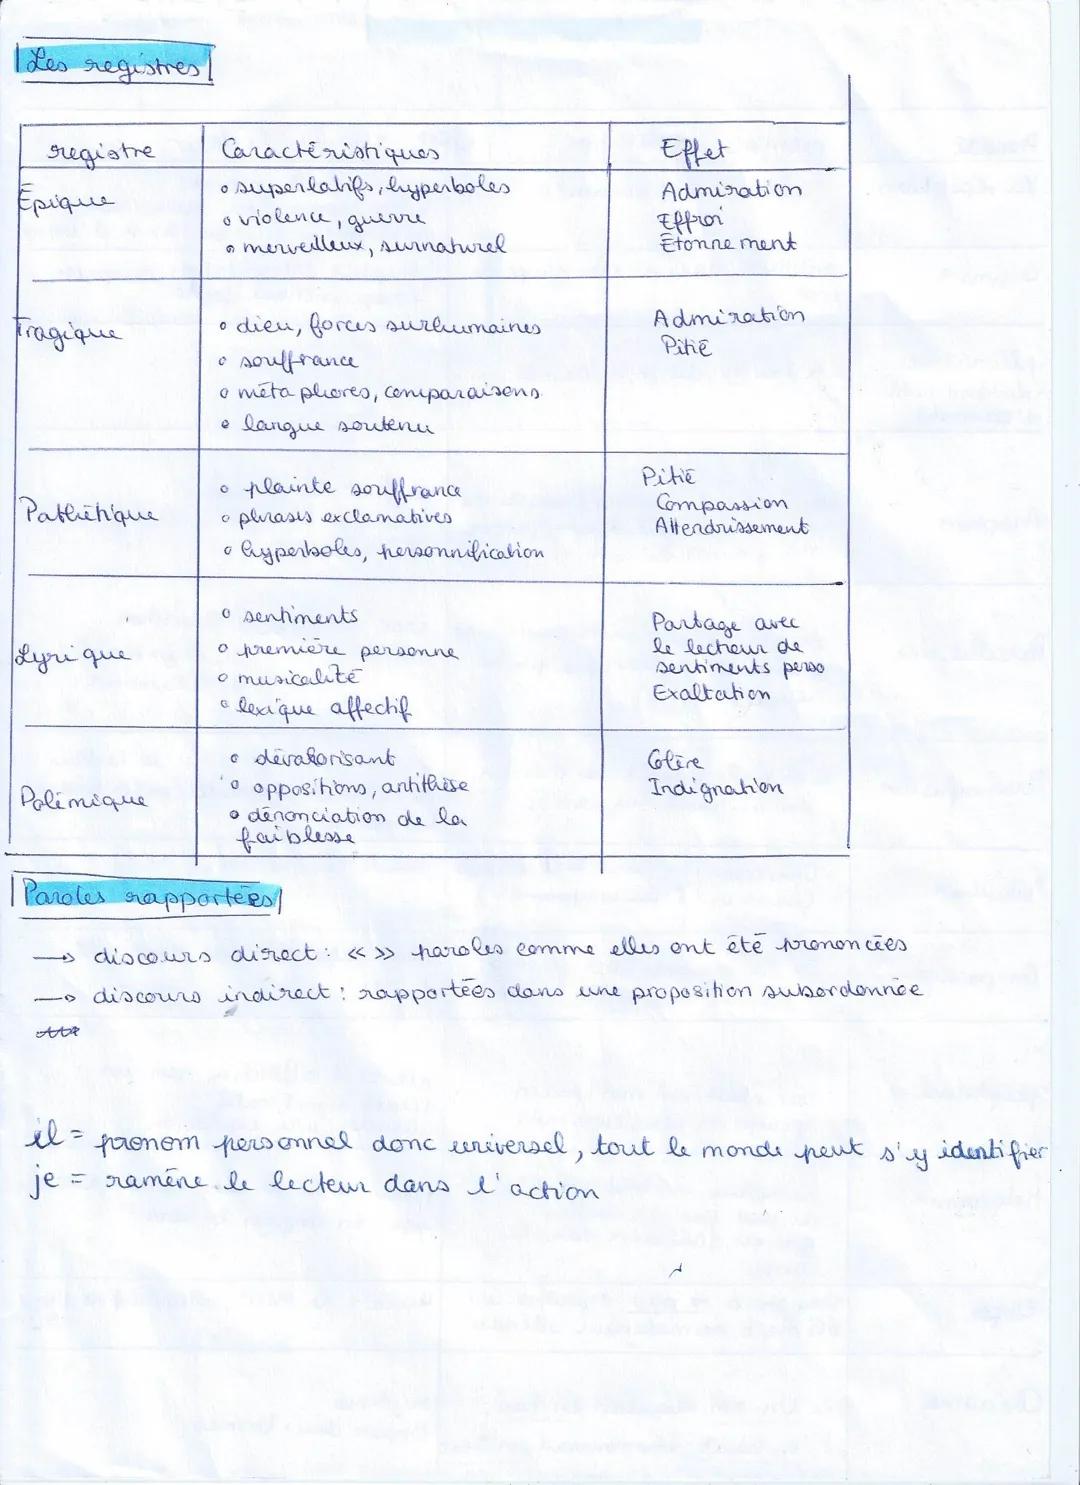 Les registres
registre Caractéristiques Effet
Épique
o superlatifs, hyperboles
o violence, guerre
o merveilleux, surnaturel
Admiration
Effroi
Étonnement
Tragique
o dieu, forces surhumaines
o souffrance
o métaphores, comparaisons
o langue soutenu
Admiration
Pitié
Pathétique
o plainte souffrance
o phrases exclamatives
o hyperboles, personnification
Pitié
Compassion
Attendrissement
Lyrique
o sentiments
o première personne
o musicalité
o lexique affectif
Partage avec
le lecteur de
sentiments perso
Exaltation
Polémique
o dévalorisant
o oppositions, antithèse
o dénonciation de la
faiblesse
Colère
Indignation
Paroles rapportées
→ discours direct : « » paroles comme elles ont été prononcées
→ discours indirect : rapportées dans une proposition subordonnée
il = pronom personnel donc universel, tout le monde peut s'y identifier
je = ramène le lecteur dans l'action